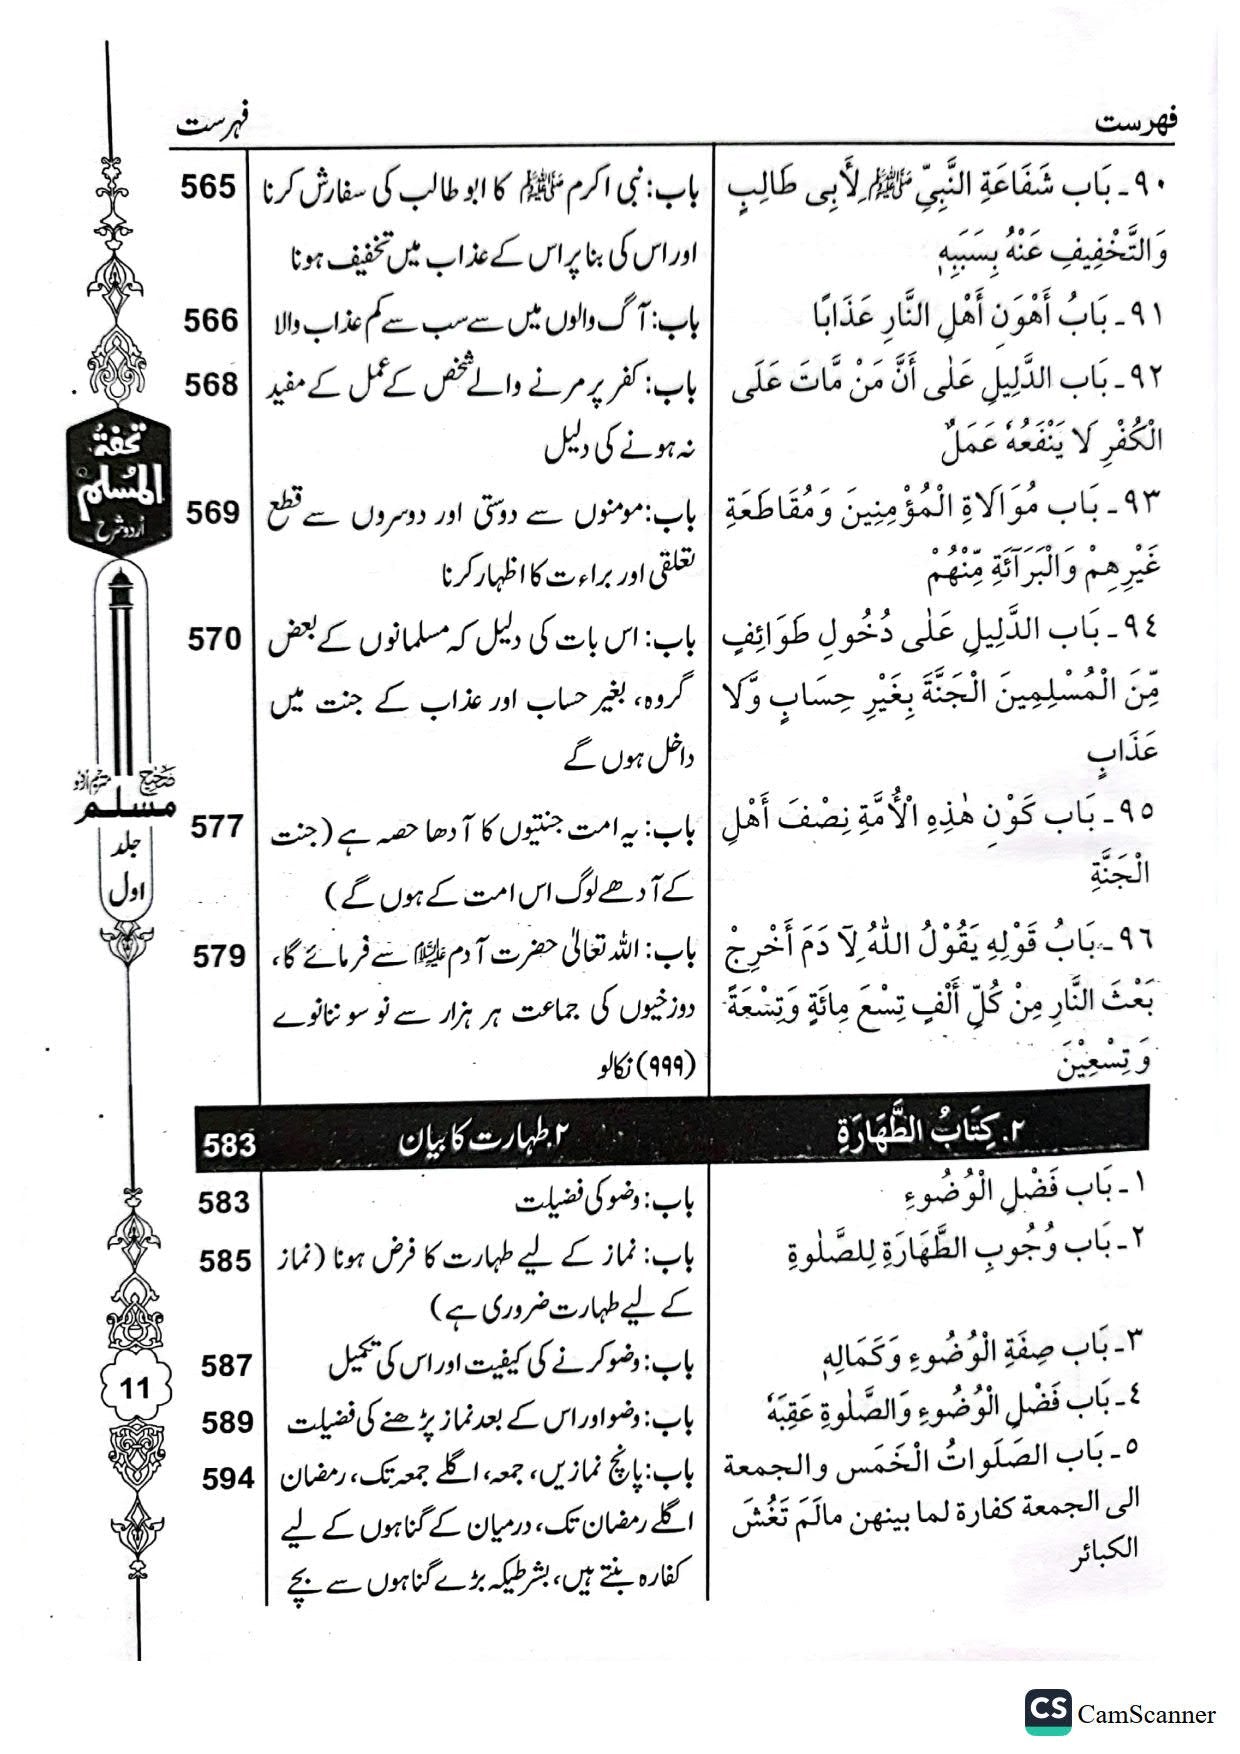 فهرست
فہرست
٩٠۔ بَاب شَفَاعَةِ النَّبِيِّ ﷺ لِأَبِى طَالِبٍ
وَالتَّخْفِيفِ عَنْهُ بِسَبَبِهٖ
باب: نبی اکرم ﷺ کا ابو طالب کی سفارش کرنا
اور اس کی بنا پر اس کے عذاب میں تخفیف ہونا
565
٩١۔ بَابُ أَهْوَنِ أَهْلِ النَّارِ عَذَابًا
باب: آگ والوں میں سے سب سے کم عذاب والا
566
٩٢۔ بَاب الدَّلِيلِ عَلٰى أَنَّ مَنْ مَّاتَ عَلَى
الْكُفْرِ لَا يَنْفَعُهٗ عَمَلٌ
باب: کفر پر مرنے والے شخص کے عمل کے مفید
نہ ہونے کی دلیل
568
٩٣۔ بَاب مُوَالَاةِ الْمُؤْمِنِينَ وَمُقَاطَعَةِ
غَيْرِهِمْ وَالْبَرَآئَةِ مِّنْهُمْ
باب: مومنوں سے دوستی اور دوسروں سے قطع
تعلقی اور براءت کا اظہار کرنا
569
٩٤۔ بَاب الدَّلِيلِ عَلٰى دُخُولِ طَوَائِفٍ
مِّنَ الْمُسْلِمِينَ الْجَنَّةَ بِغَيْرِ حِسَابٍ وَّلَا
عَذَابٍ
باب: اس بات کی دلیل کہ مسلمانوں کے بعض
گروہ، بغیر حساب اور عذاب کے جنت میں
داخل ہوں گے
570
٩٥۔ بَاب كَوْنِ هٰذِهِ الْأُمَّةِ نِصْفَ أَهْلِ
الْجَنَّةِ
باب: یہ امت جنتیوں کا آدھا حصہ ہے (جنت
کے آدھے لوگ اس امت کے ہوں گے)
577
٩٦۔ بَابُ قَوْلِهِ يَقُوْلُ اللّٰهُ لِآدَمَ أَخْرِجْ
بَعْثَ النَّارِ مِنْ كُلِّ أَلْفٍ تِسْعَ مِائَةٍ وَتِسْعَةً
وَتِسْعِيْنَ
باب: اللہ تعالیٰ حضرت آدم علیہ السلام سے فرمائے گا،
دوزخیوں کی جماعت ہر ہزار سے نو سو ننانوے
(۹۹۹) نکالو
579
٢. كِتَابُ الطَّهَارَةِ
۲. طہارت کا بیان
583
١۔ بَاب فَضْلِ الْوُضُوءِ
باب: وضو کی فضیلت
583
٢۔ بَاب وُجُوبِ الطَّهَارَةِ لِلصَّلٰوةِ
باب: نماز کے لیے طہارت کا فرض ہونا (نماز
کے لیے طہارت ضروری ہے)
585
٣۔ بَاب صِفَةِ الْوُضُوءِ وَكَمَالِهٖ
باب: وضو کرنے کی کیفیت اور اس کی تکمیل
587
٤۔ بَاب فَضْلِ الْوُضُوءِ وَالصَّلٰوةِ عَقِبَهٗ
باب: وضو اور اس کے بعد نماز پڑھنے کی فضیلت
589
٥۔ بَاب الصَلَوَاتُ الْخَمَس والجمعة
الى الجمعة كفارة لما بينهن مالَمَ تَغُشَ
الكبائر
باب: پانچ نمازیں، جمعہ، اگلے جمعہ تک، رمضان
اگلے رمضان تک، درمیان کے گناہوں کے لیے
کفارہ بنتے ہیں، بشرطیکہ بڑے گناہوں سے بچے
594
تحفۃ
المسلم
اردو شرح
صحیح
مترجم اردو
مسلم
جلد
اول
11
CS CamScanner